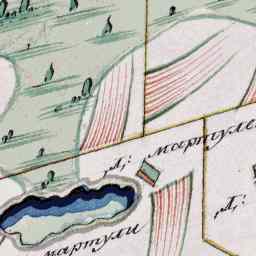 Д: мартули
Д:
мартули